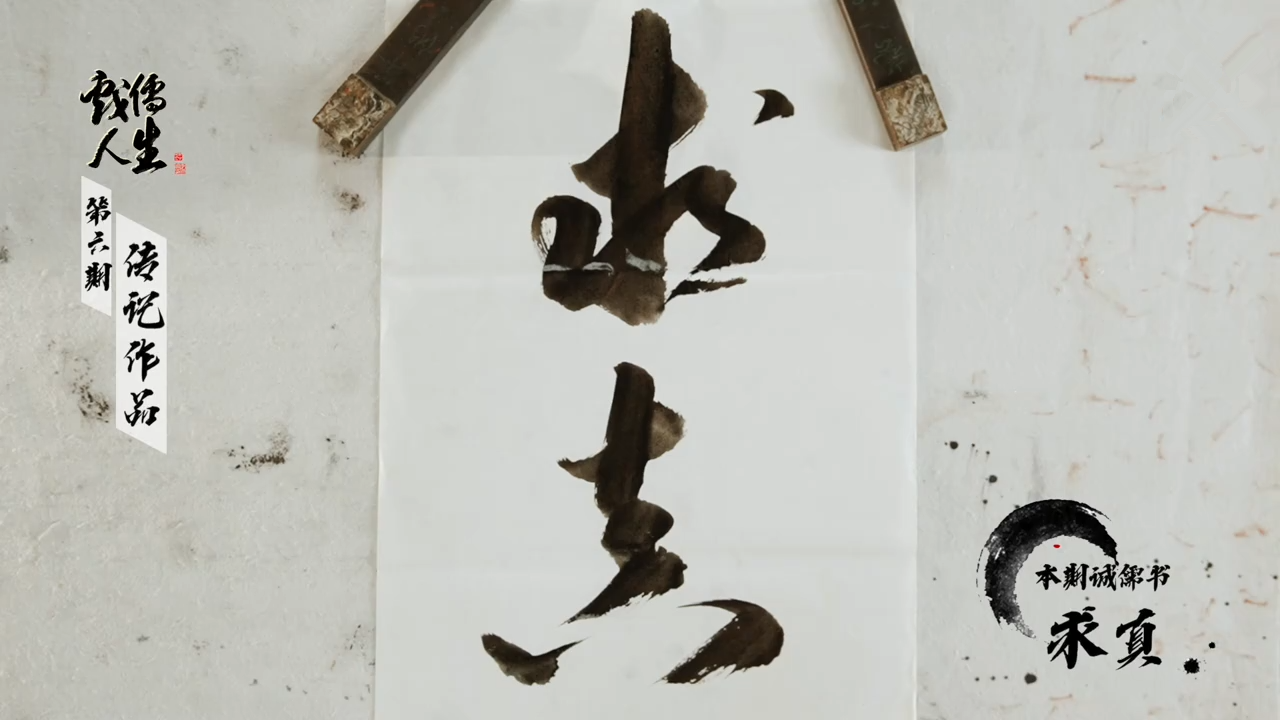 戏儒
人生
第六期
传说作品
求真
本期诚儒书
求真